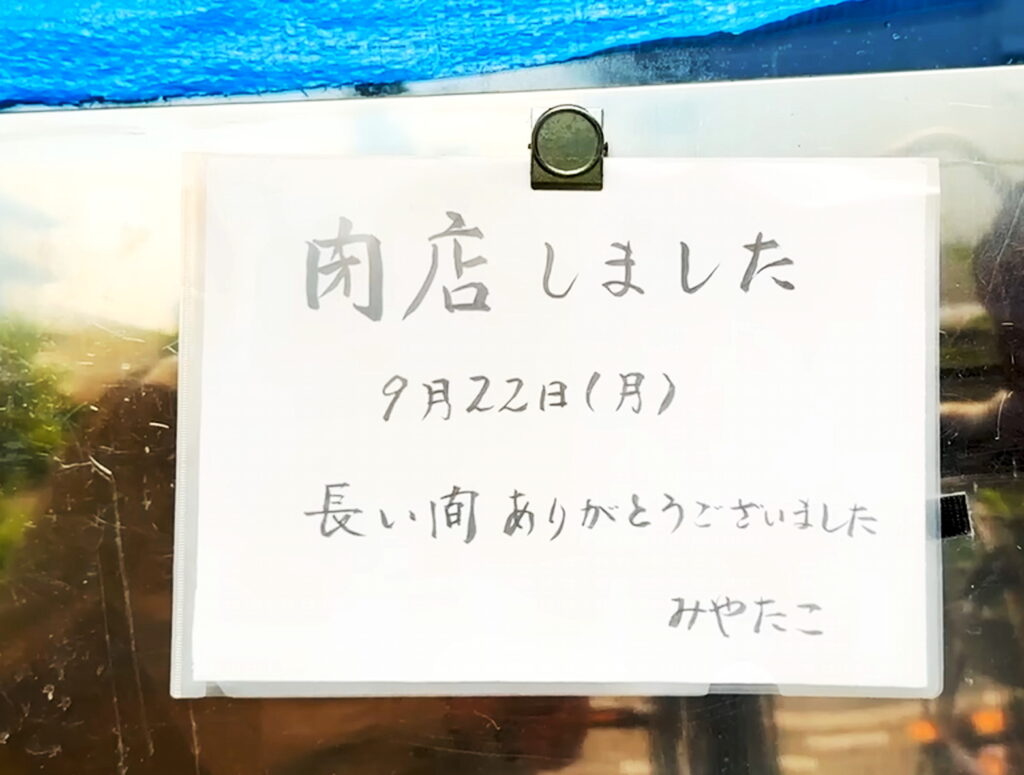 閉店しました
9月22日(月)
長い間ありがとうございました
みやたこ